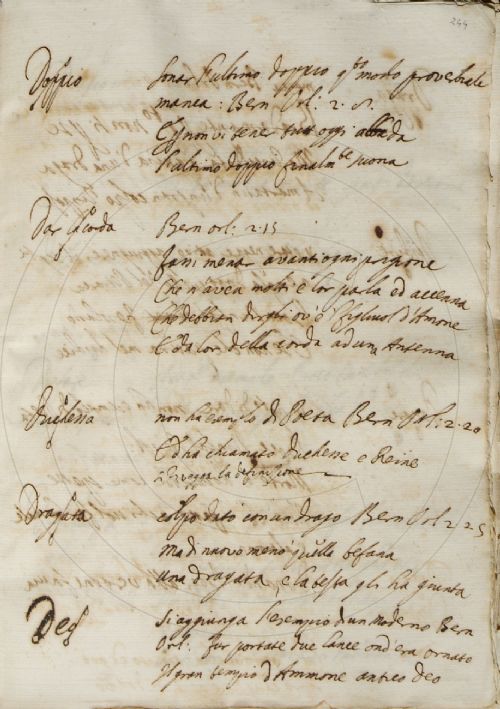 244
Doppio sonar l'ultimo doppio qto modo proverbiale
manca: Bern. Orl: 2. 8.
tutt oggi
l'ultimo doppio finalmte suona
Dar la corda Bern orl: 2. 15
fassi menar avanti ogni prigione
Che n'avea molti e lor parla ed accenna
Che debban dirgli ov'è 'l figliuol d'Amone
E dà lor della corda ad un'Antenna
Duchessa non ha esempio di Poeta Bern Orl: 2. 20
Ed ha chiamato duchesse e Reine
la definizione
Dragata colpo dato con un drago Bern Orl 2 25
Ma di nuovo menò quella befana
una dragata, e la testa gli ha giunta
Deo si aggiunga l'esempio d'un Moderno Bern
Orl: fur portate due lance ond'era ornato
Il gran tempio d'Ammone antico deo